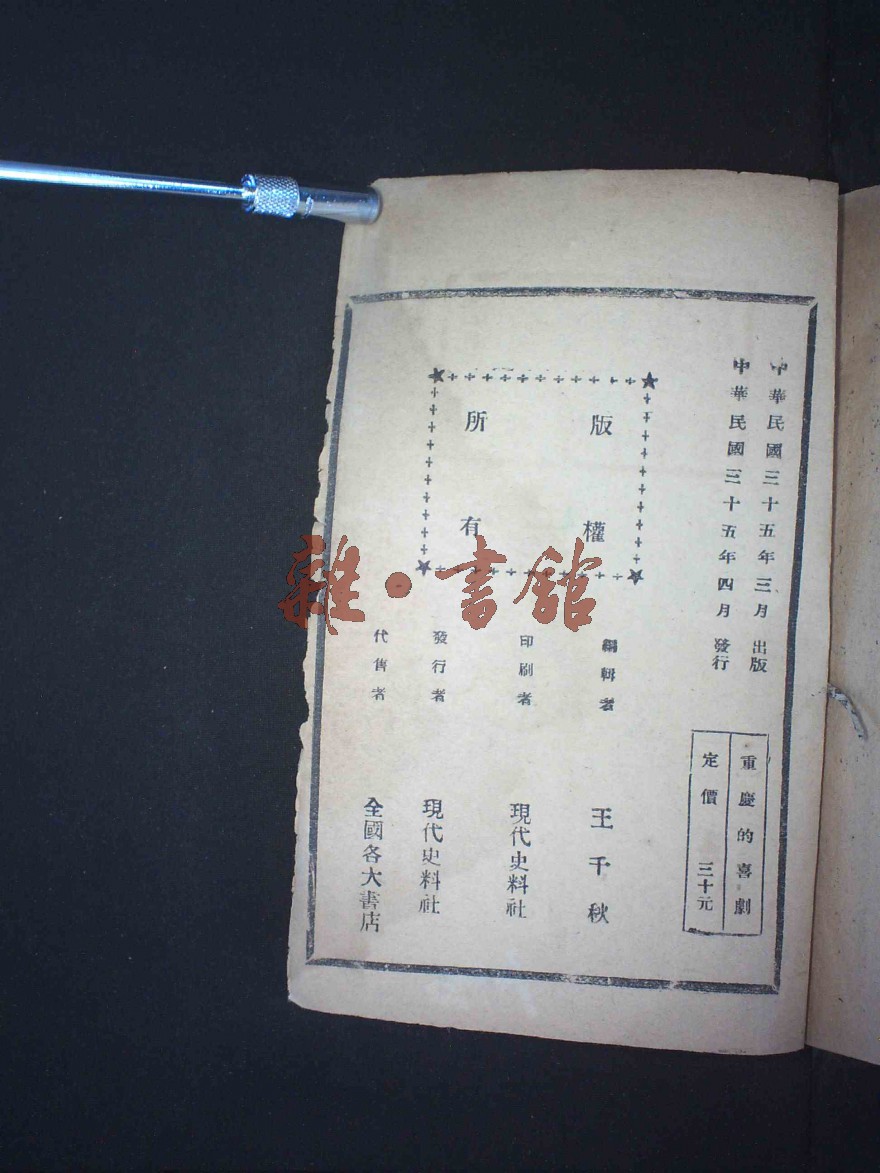 中華民國三十五年三月出版
中華民國三十五年四月發行
重慶的喜劇
定價 三十元
版權
所有
編輯者 王千秋
印刷者 現代史料社
發行者 現代史料社
代售者 全國各大書店
雜·書館